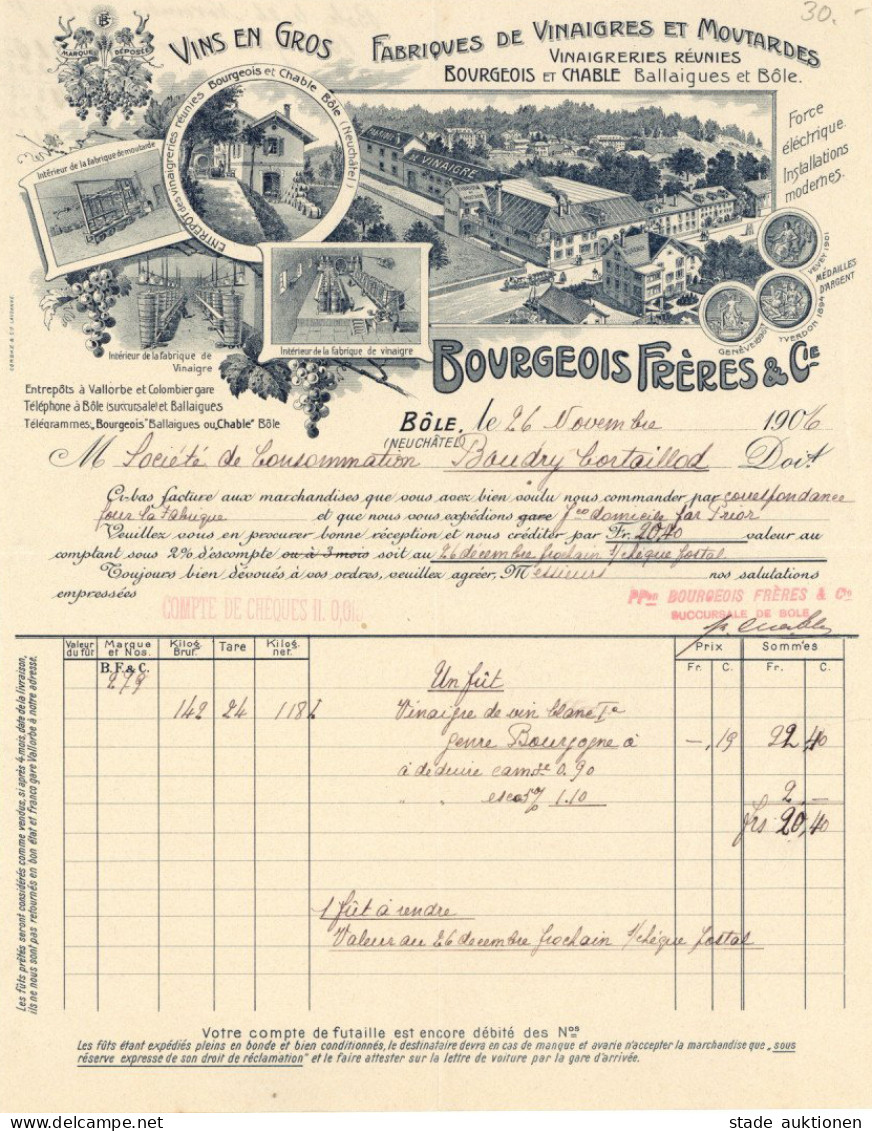 30.-
BF
MARQUE DÉPOSÉE
VINS EN GROS
FABRIQUES DE VINAIGRES ET MOUTARDES
VINAIGRERIES RÉUNIES
BOURGEOIS ET CHABLE Ballaigues et Bôle.
Force
éléctrique.
Installations
modernes.
ENTREPÔT des vinaigreries réunies Bourgeois et Chable Bôle (Neuchâtel)
Intérieur de la fabrique de moutarde
VINAIGRE
VEVEY 1901
MÉDAILLES
D'ARGENT
YVERDON 1894
GENÈVE 1896
Intérieur de la fabrique de
Vinaigre
Intérieur de la fabrique de vinaigre
BOURGEOIS FRÈRES & CIE
Entrepôts à Vallorbe et Colombier gare
Téléphone à Bôle (succursale) et Ballaigues
Télégrammes: „Bourgeois" Ballaigues ou „Chable" Bôle
BÔLE, le 26 Novembre 1906
(NEUCHÂTEL)
M Société de Consommation Boudry Cortaillod Doit
Ci-bas facture aux marchandises que vous avez bien voulu nous commander par correspondance
pour la Fabrique et que nous vous expédions gare fco domicile par Prior
Veuillez vous en procurer bonne réception et nous créditer par Fr. 20,40 valeur au
comptant sous 2% d'escompte ou à 3 mois soit au 26 decembre prochain s/chèque postal
Toujours bien dévoués à vos ordres, veuillez agréer, Messieurs nos salutations
empressées
COMPTE DE CHÈQUES II. 0,01
PPon BOURGEOIS FRÈRES & Cie
SUCCURSALE DE BOLE
Valeur du fût
Marque et Nos.
Kilog. Brut.
Tare
Kilog. net.
Prix
Sommes
Fr. C. Fr. C.
B. F. & C.
279
Un fût
142 24 118 l Vinaigre de vin blanc Ia
genre Bourgogne à -,19 22,40
à déduire camge 0.90
" esc 5% 1.10 2.-
frs 20,40
1 fût à rendre
Valeur au 26 decembre prochain s/chèque postal
Les fûts prêtés seront considérés comme vendus, si après 4 mois, date de la livraison,
ils ne nous sont pas retournés en bon état et franco gare Vallorbe à notre adresse.
Votre compte de futaille est encore débité des Nos
Les fûts étant expédiés pleins en bonde et bien conditionnés, le destinataire devra en cas de manque et avarie n'accepter la marchandise que „sous
réserve expresse de son droit de réclamation" et le faire attester sur la lettre de voiture par la gare d'arrivée.
stade auktionen